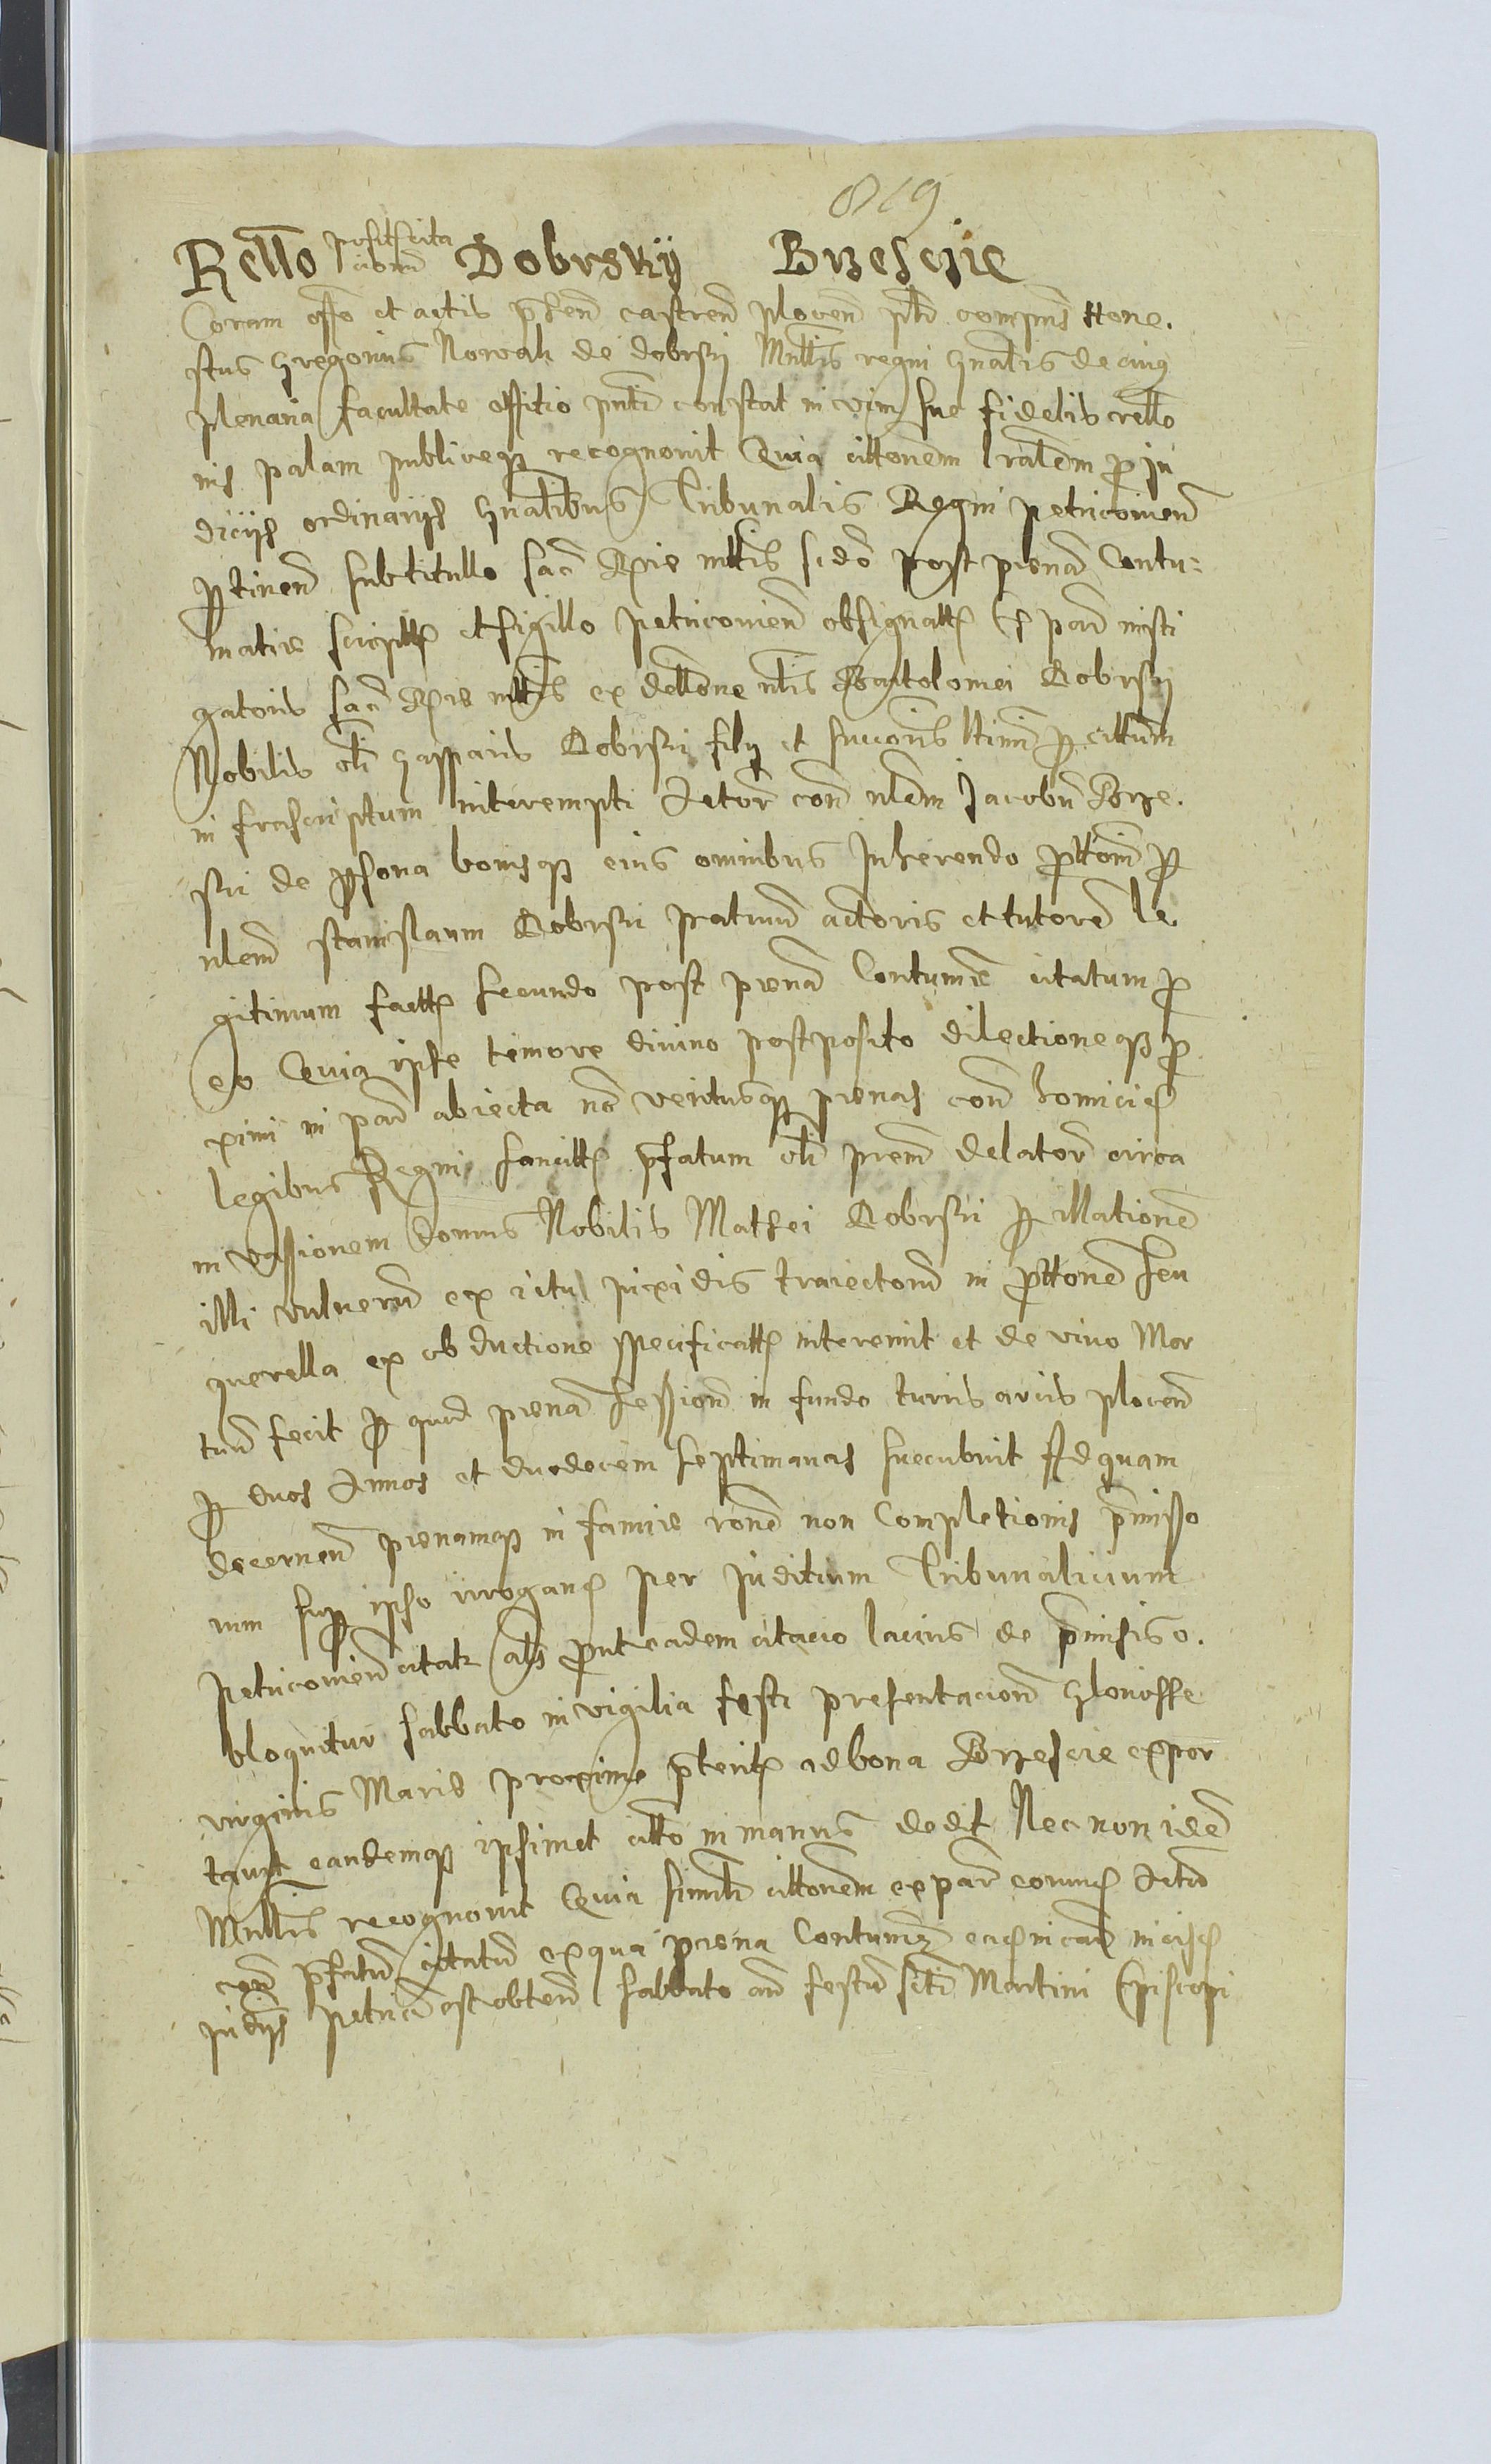 819
Rello positscita Dobrskÿ Brzescÿe
cionum
Coram offo et actis pnten castren plocen psl compns Hone.
stus Gregorius Nowak de dobrsy Mnllis regni gnalis de cuius
plenaria facultate offitio pnti constat in vim sue fidelis rello
nis palam publiceq recognouit Quia cittonem lralem pro ju
dicÿs ordinarÿs gnalibus Tribunalis Regni petricouien
ptinen subtitullo sac Rgie mttis scdo post penam Contu:
matie script et sigillo petricouien obsignatt ex par insti
gatoris sac Rgie mttis ex dellone nlis Bartolomei Dobrsky
Nobilis oli Gasparis Dobrski filÿ et succoris ltimi p cittum
infrascriptum interempti Actor con nlem Jacobu Brze.
ski de psona bonisq eius omnibus Inherendo pttoni p
nlem Stanislaum Dobrski patruu actoris et tutore le
gitimum fact secundo post penam Contumie citatum pro
eo Quia ipse timore diuino postposito dilectioneq pro
ximi in par abiecta nec veritusq penas con homicid
legibus Regni sancitt pfatum oli prem delator circa
inuasionem domus Nobilis Mathei Dobrski p illatione
illi vulneru ex ictu pixidis traiectoru in pttone seu
querella ex obductione specificatt interemit et de viuo Mor
tuu fecit p quod pena sessionis in fundo turris arcis plocen
p duos Annos et duodecem septimanas succubuit Ad quam
decernen penamq infamie rone non Completionis pmisso
rum sup ipso irrogan per juditium Tribunalicium
petricouien citatr als prout eadem citacio lacius de pmissis o.
bloquitur sabbato in vigilia festi presentacionis Gloriosse
virginis Marie proxime pterit ad bona Brzescie expor
tauit eandemq ipsimet citto in manus dedit Nec non idem
Mnllis recognouit Quia simili cittonem ex par eorund Actoru
con pfatu citatu ex qua pena Contumie eadem in can in eisd
judÿs petricouien est obten sabbato an festu scti Martini Episcopi